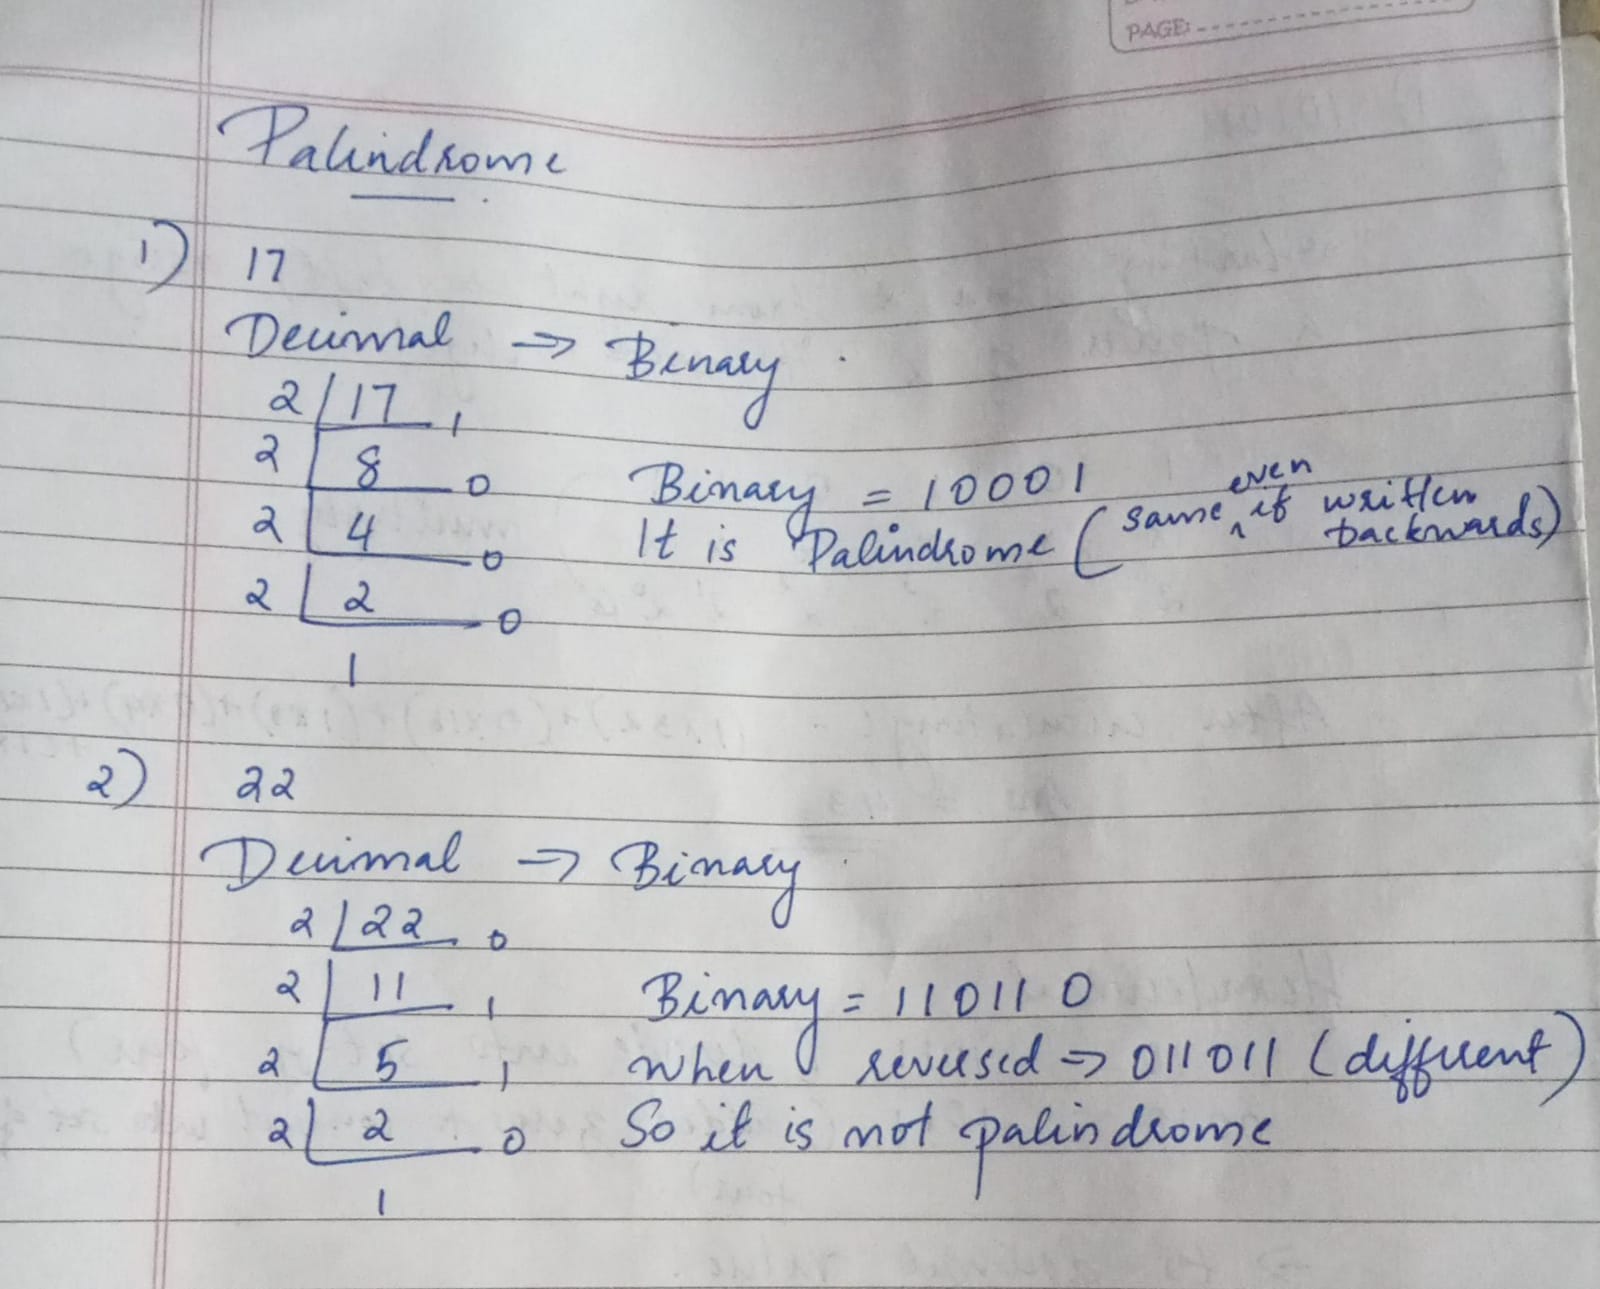 PAGE:
Palindrome
1) 17
Decimal → Binary
2 17 1
2 8 0
2 4 0
2 2 0
1
Binary = 10001
It is Palindrome (same even if written backwards)
2) 22
Decimal → Binary
2 22 0
2 11 1
2 5 1
2 2 0
1
Binary = 110110
when reversed → 011011 (different)
So it is not palindrome